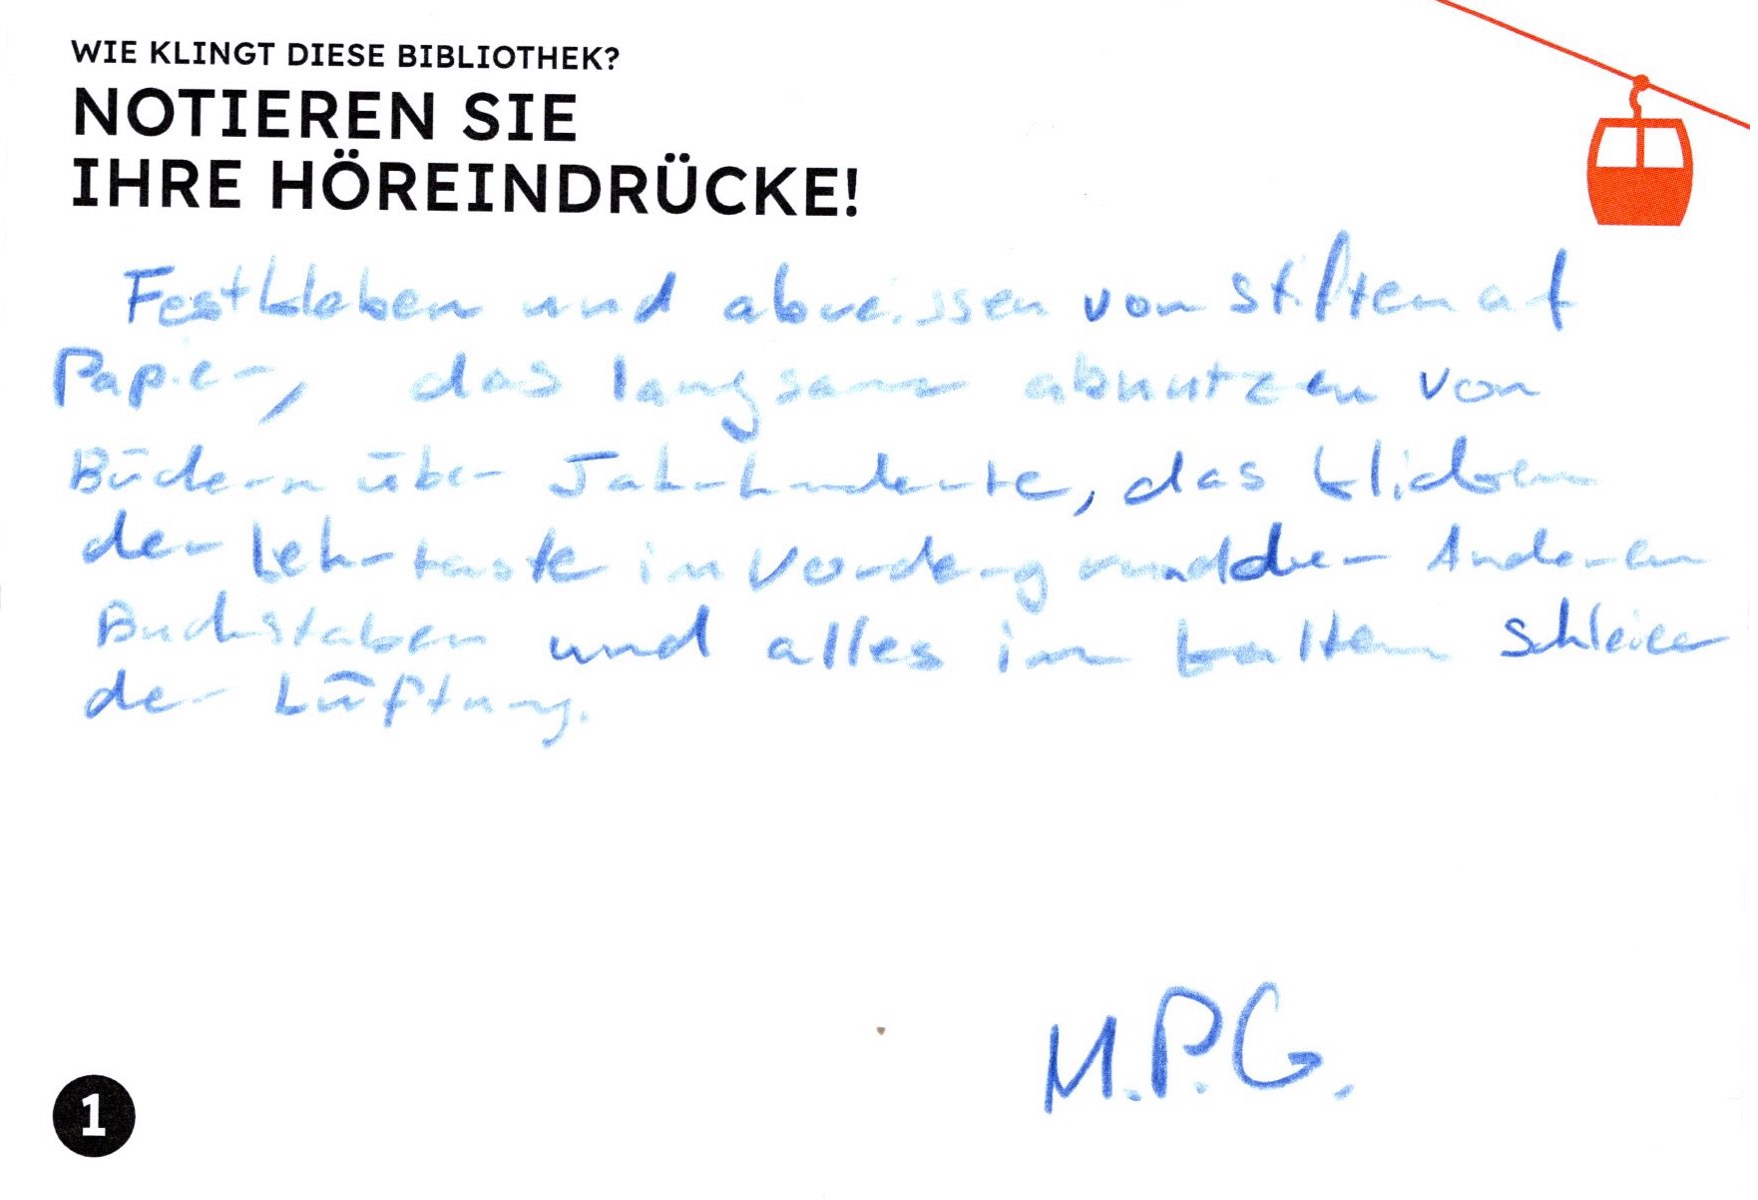 WIE KLINGT DIESE BIBLIOTHEK?
NOTIEREN SIE
IHRE HÖREINDRÜCKE!
Festkleben und abreissen von Stiften auf
Papier, das langsame abnutzen von
Büchern über Jahrhunderte, das klicken
der Leertaste im Vordergrund der Anderen
Buchstaben und alles im kalten Schleier
der Lüftung.
M.P.G.
1